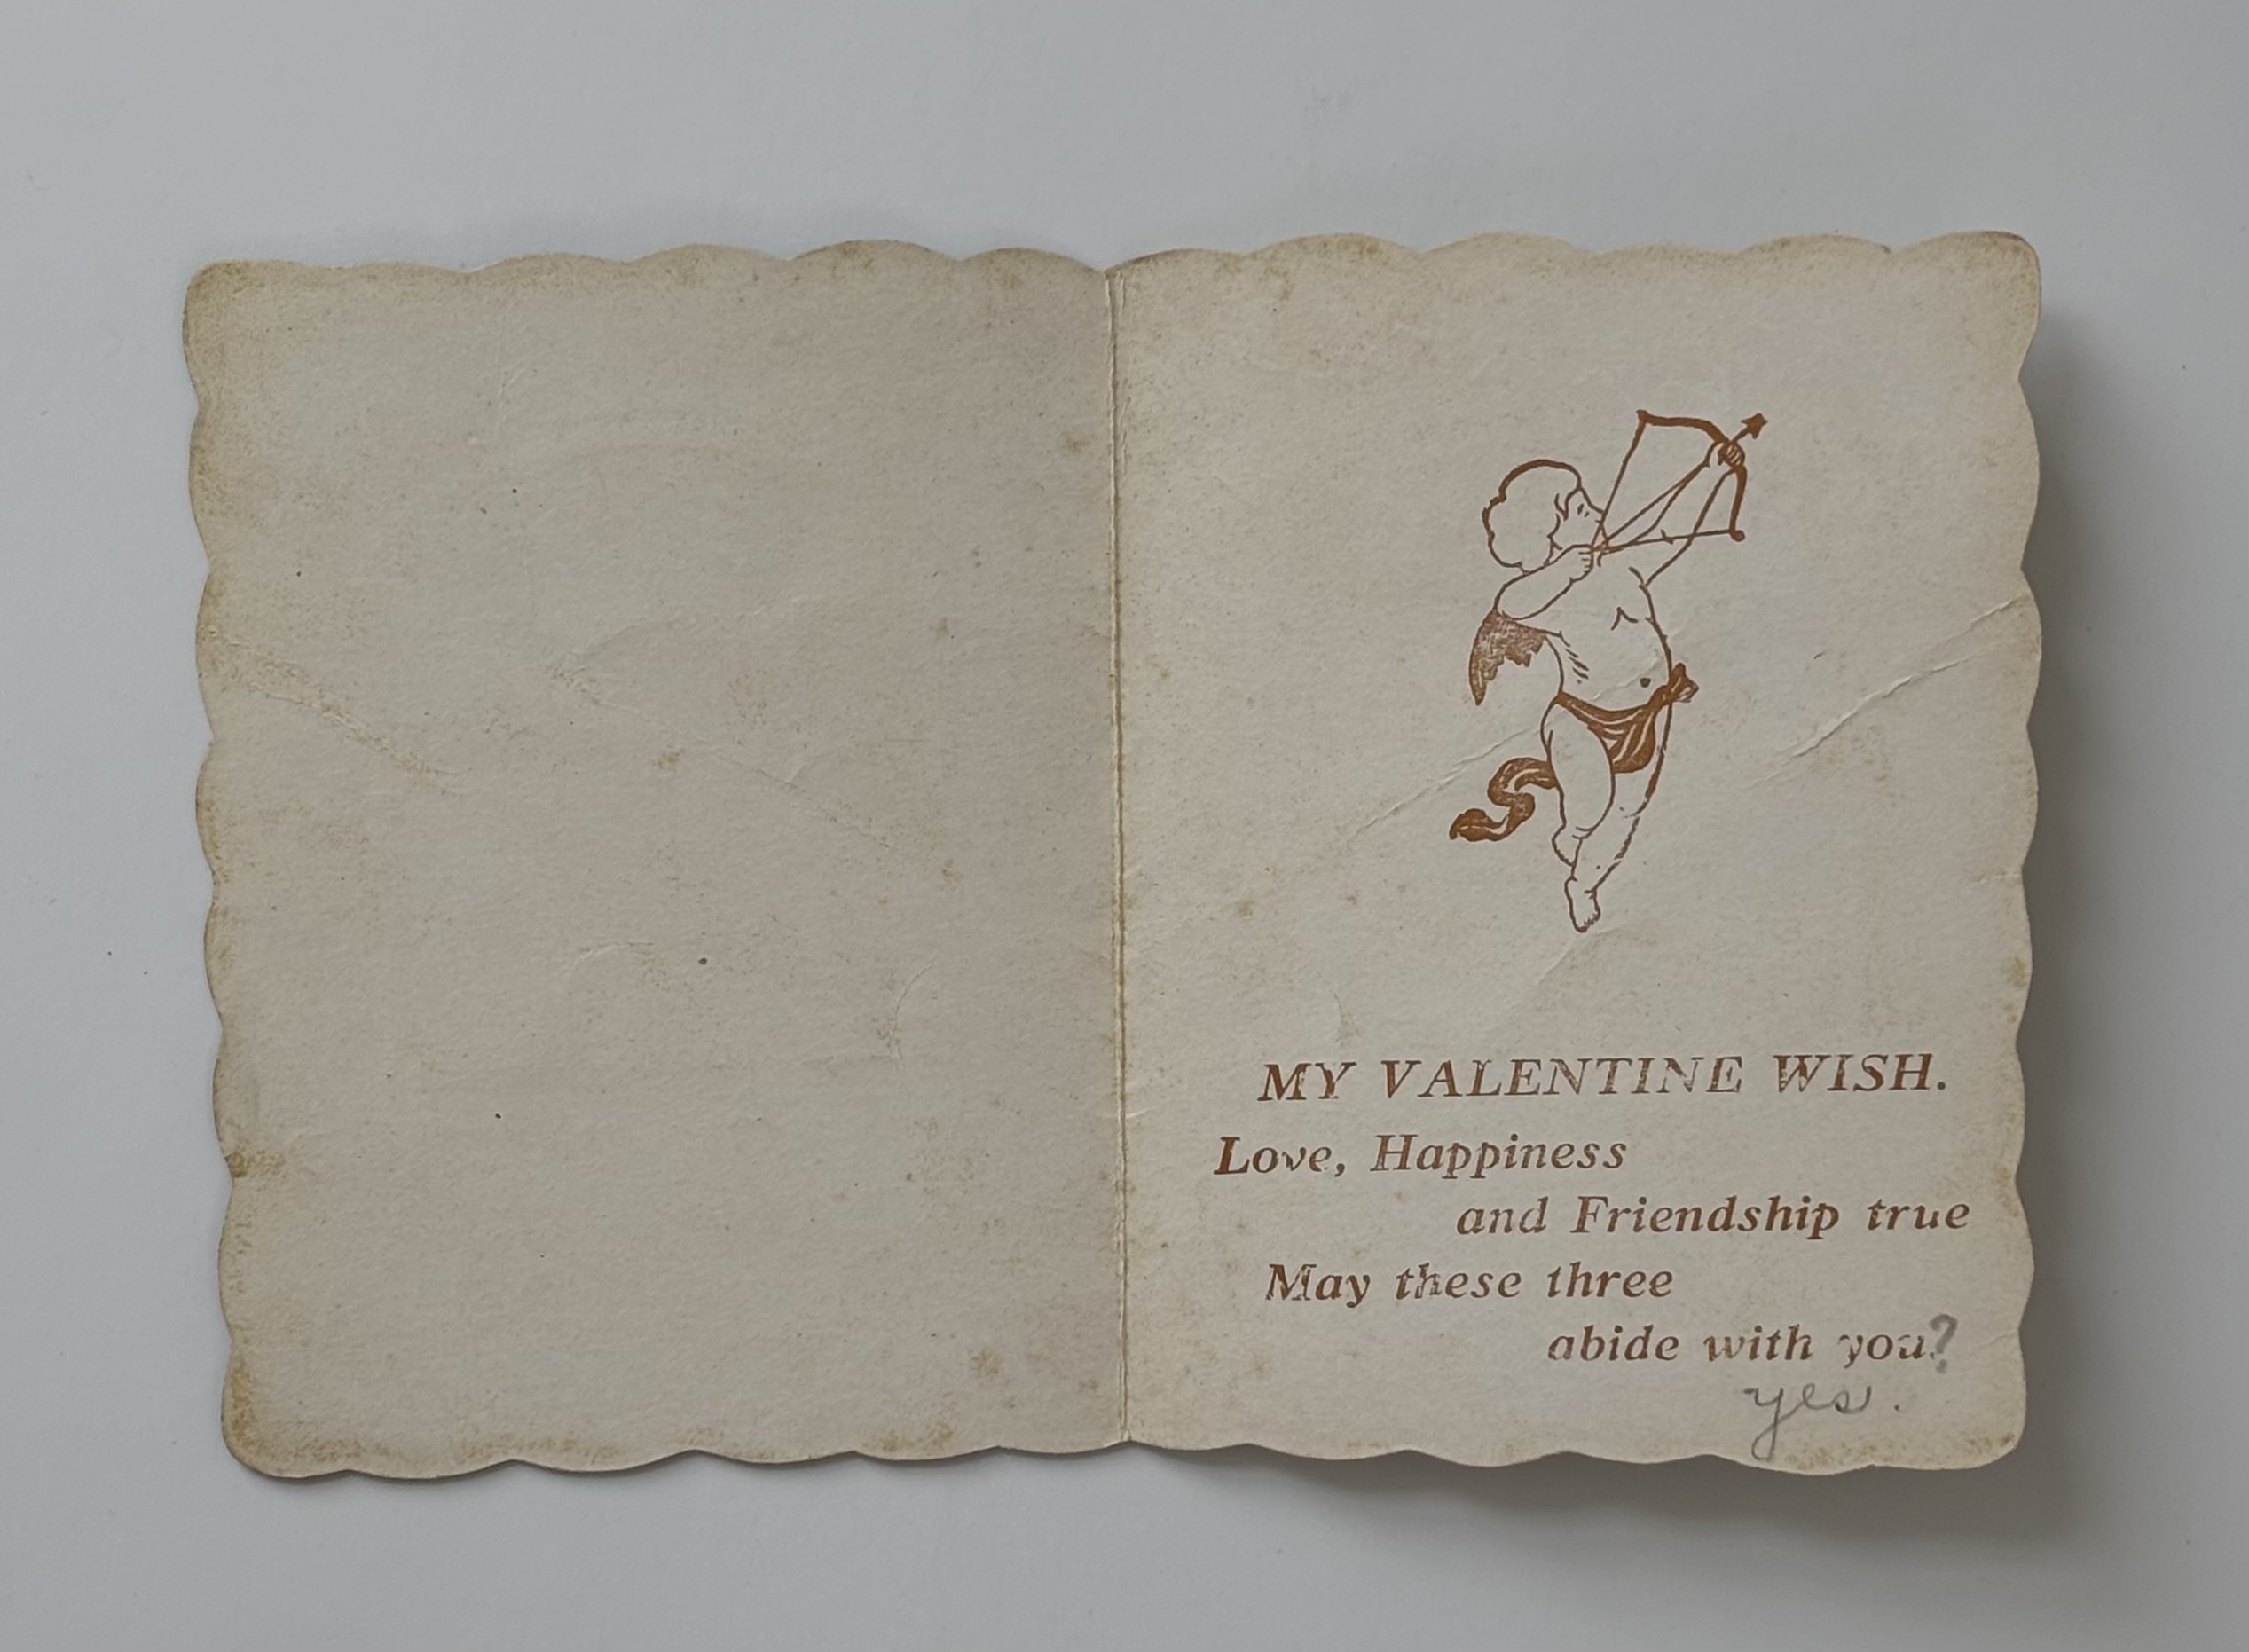 MY VALENTINE WISH.
Love, Happiness
and Friendship true
May these three
abide with you?
yes.